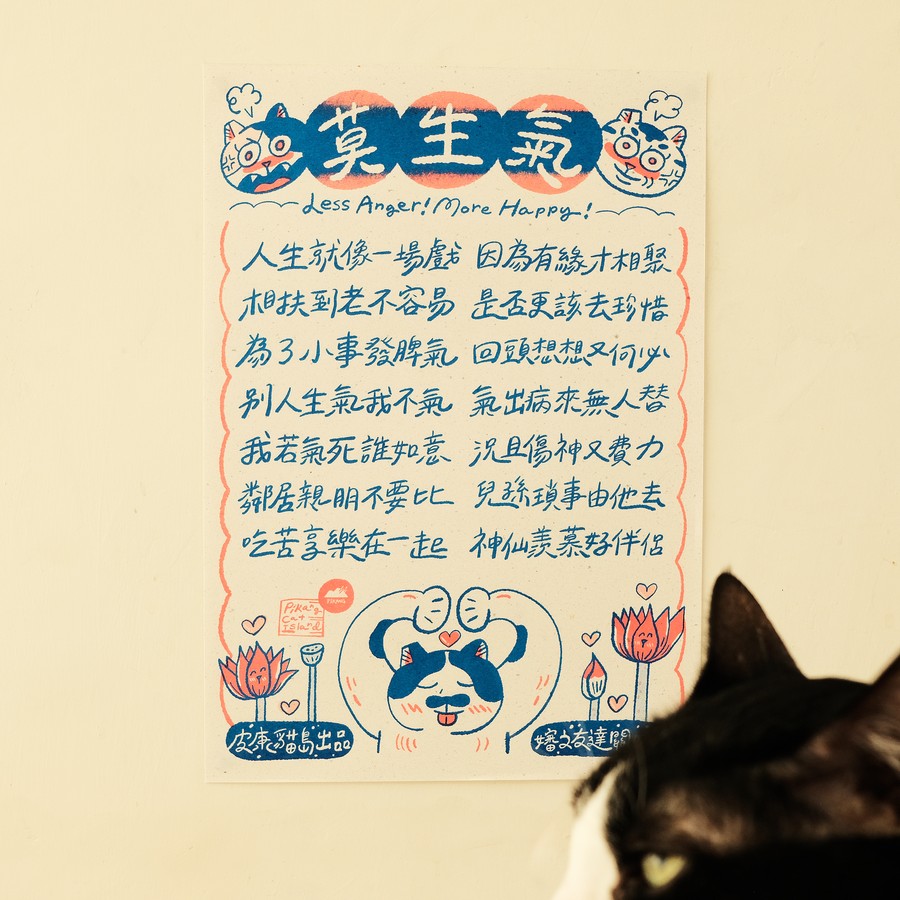 莫生氣
Less Anger! More Happy!
人生就像一場戲 因為有緣才相聚
相扶到老不容易 是否更該去珍惜
為了小事發脾氣 回頭想想又何必
別人生氣我不氣 氣出病來無人替
我若氣死誰如意 況且傷神又費力
鄰居親朋不要比 兒孫瑣事由他去
吃苦享樂在一起 神仙羨慕好伴侶
Pikang
Cat
Island
皮康貓島出品
嬸文友達